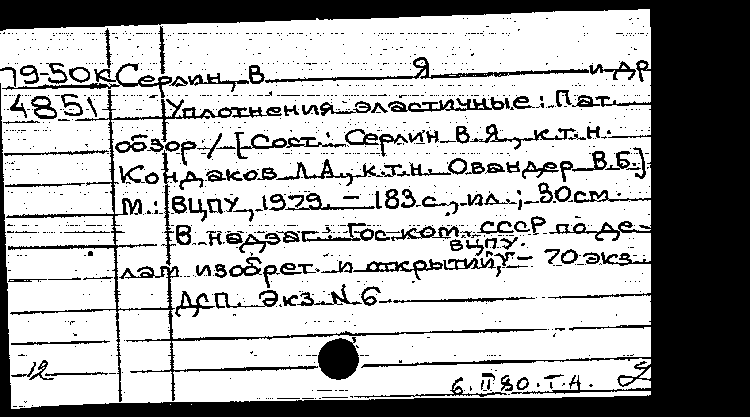 79-50к Серлин, В Я и др
4851 Уплотнения эластичные: Пат.
обзор / [Сост.: Серлин В.Я., к.т.н.
Кондаков Л.А., к.т.н. Овандер В.Б.]
М.: ВЦПУ, 1979. – 183 с., ил.; 30 см.
В надзаг.: Гос. ком. СССР по де-
лам изобрет. и открытий, ВЦПУ. – 70 экз.
ДСП. Экз. N 6
12
6. II 80. Т.А.